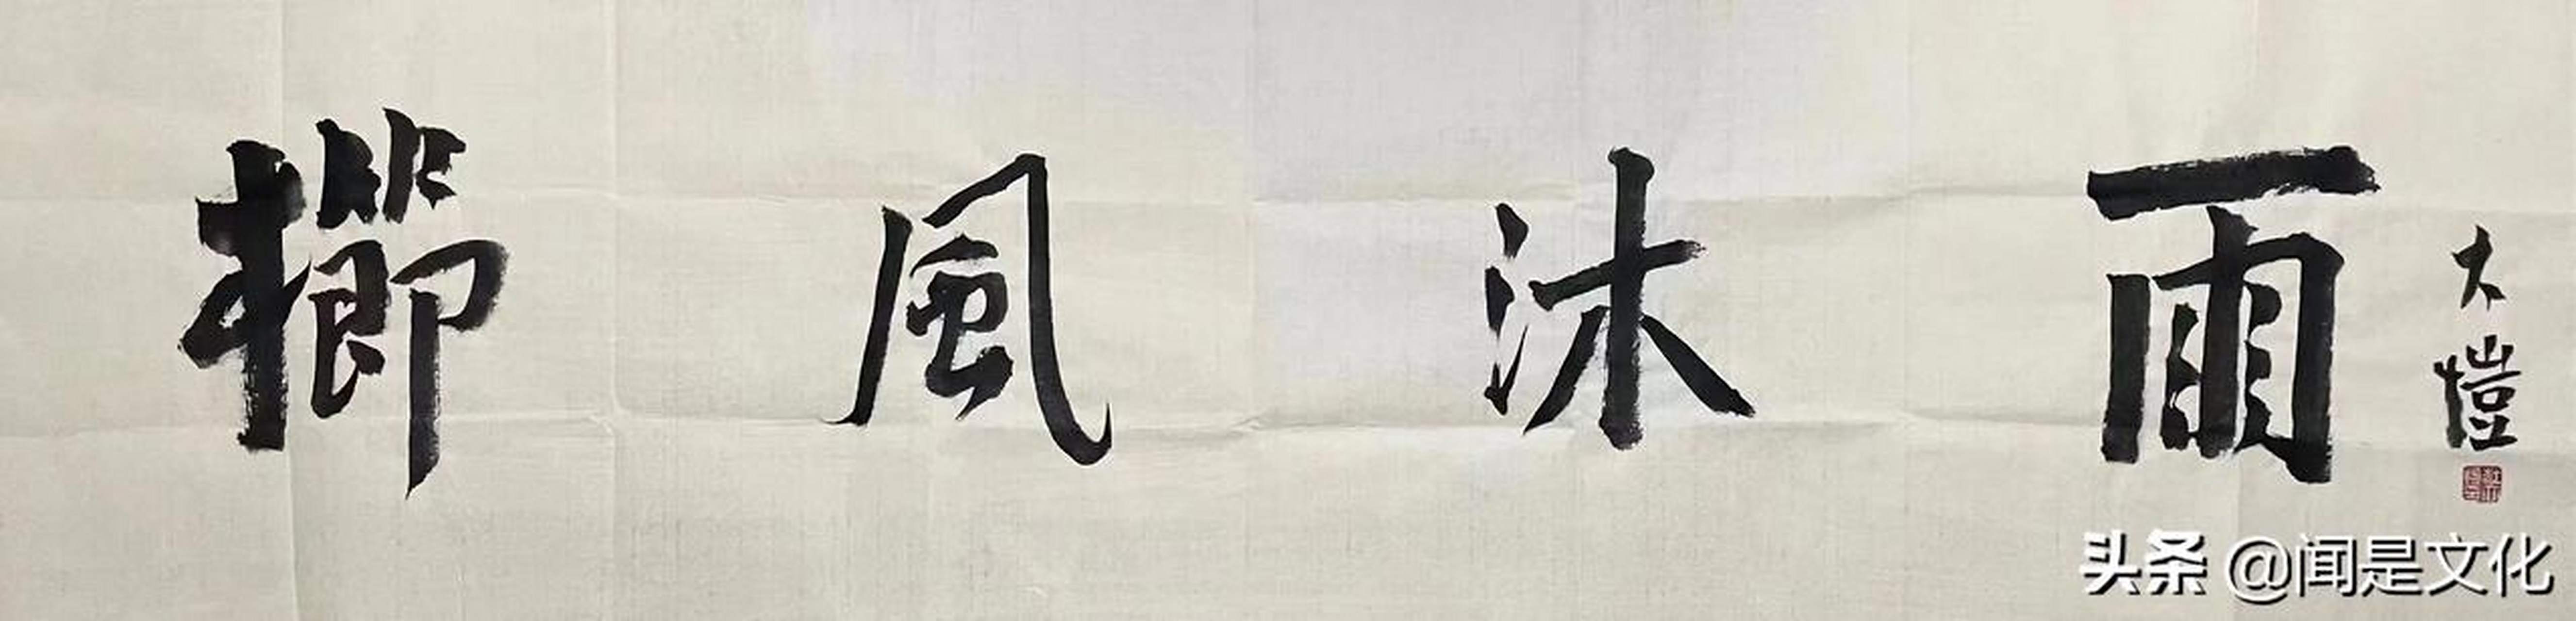 櫛風沐雨
大愷
头条 @闻是文化